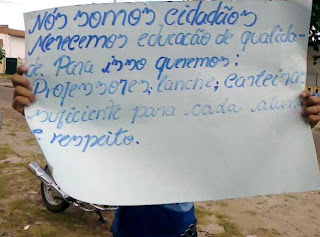 Nós somos cidadãos
Merecemos educação de qualida-
de. Para isso queremos:
Professores; lanche; carteiras
suficiente para cada aluno
e respeito.